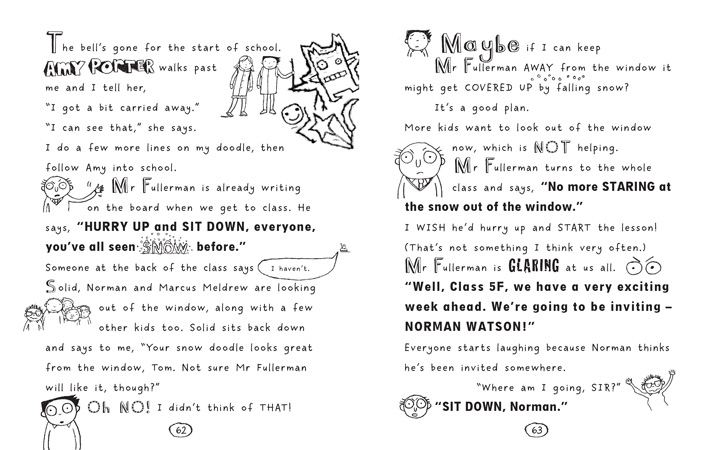 The bell's gone for the start of school.
AMY PORTER walks past
me and I tell her,
"I got a bit carried away."
"I can see that," she says.
I do a few more lines on my doodle, then
follow Amy into school.
Mr Fullerman is already writing
on the board when we get to class. He
says, "HURRY UP and SIT DOWN, everyone,
you've all seen SNOW before."
Someone at the back of the class says I haven't.
Solid, Norman and Marcus Meldrew are looking
out of the window, along with a few
other kids too. Solid sits back down
and says to me, "Your snow doodle looks great
from the window, Tom. Not sure Mr Fullerman
will like it, though?"
Oh NO! I didn't think of THAT!
62
Maybe if I can keep
Mr Fullerman AWAY from the window it
might get COVERED UP by falling snow?
It's a good plan.
More kids want to look out of the window
now, which is NOT helping.
Mr Fullerman turns to the whole
class and says, "No more STARING at
the snow out of the window."
I WISH he'd hurry up and START the lesson!
(That's not something I think very often.)
Mr Fullerman is GLARING at us all.
"Well, Class 5F, we have a very exciting
week ahead. We're going to be inviting –
NORMAN WATSON!"
Everyone starts laughing because Norman thinks
he's been invited somewhere.
"Where am I going, SIR?"
"SIT DOWN, Norman."
63